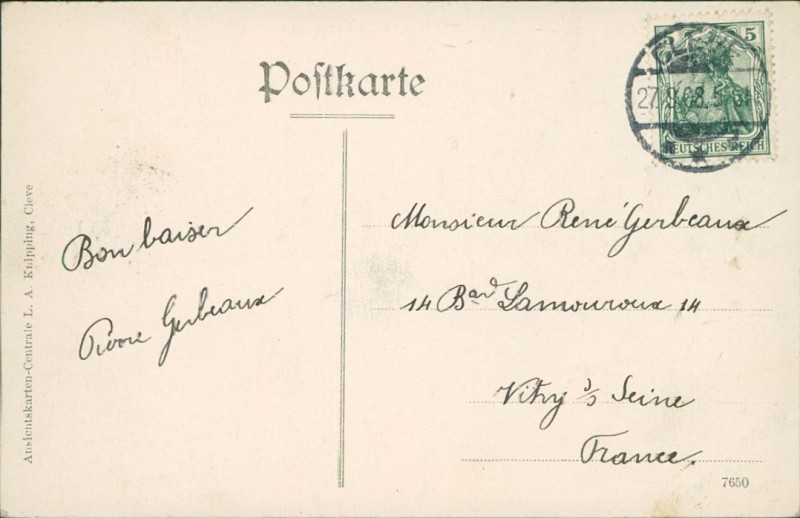 Postkarte
5
27.9.08.5
DEUTSCHES REICH
Bon baiser
Gerbeaux
Monsieur René Gerbeaux
14 Bard Lamouroux 14
Vitry s/s Seine
France.
7650
Ansichtskarten-Centrale L. A. Knipping, Cleve